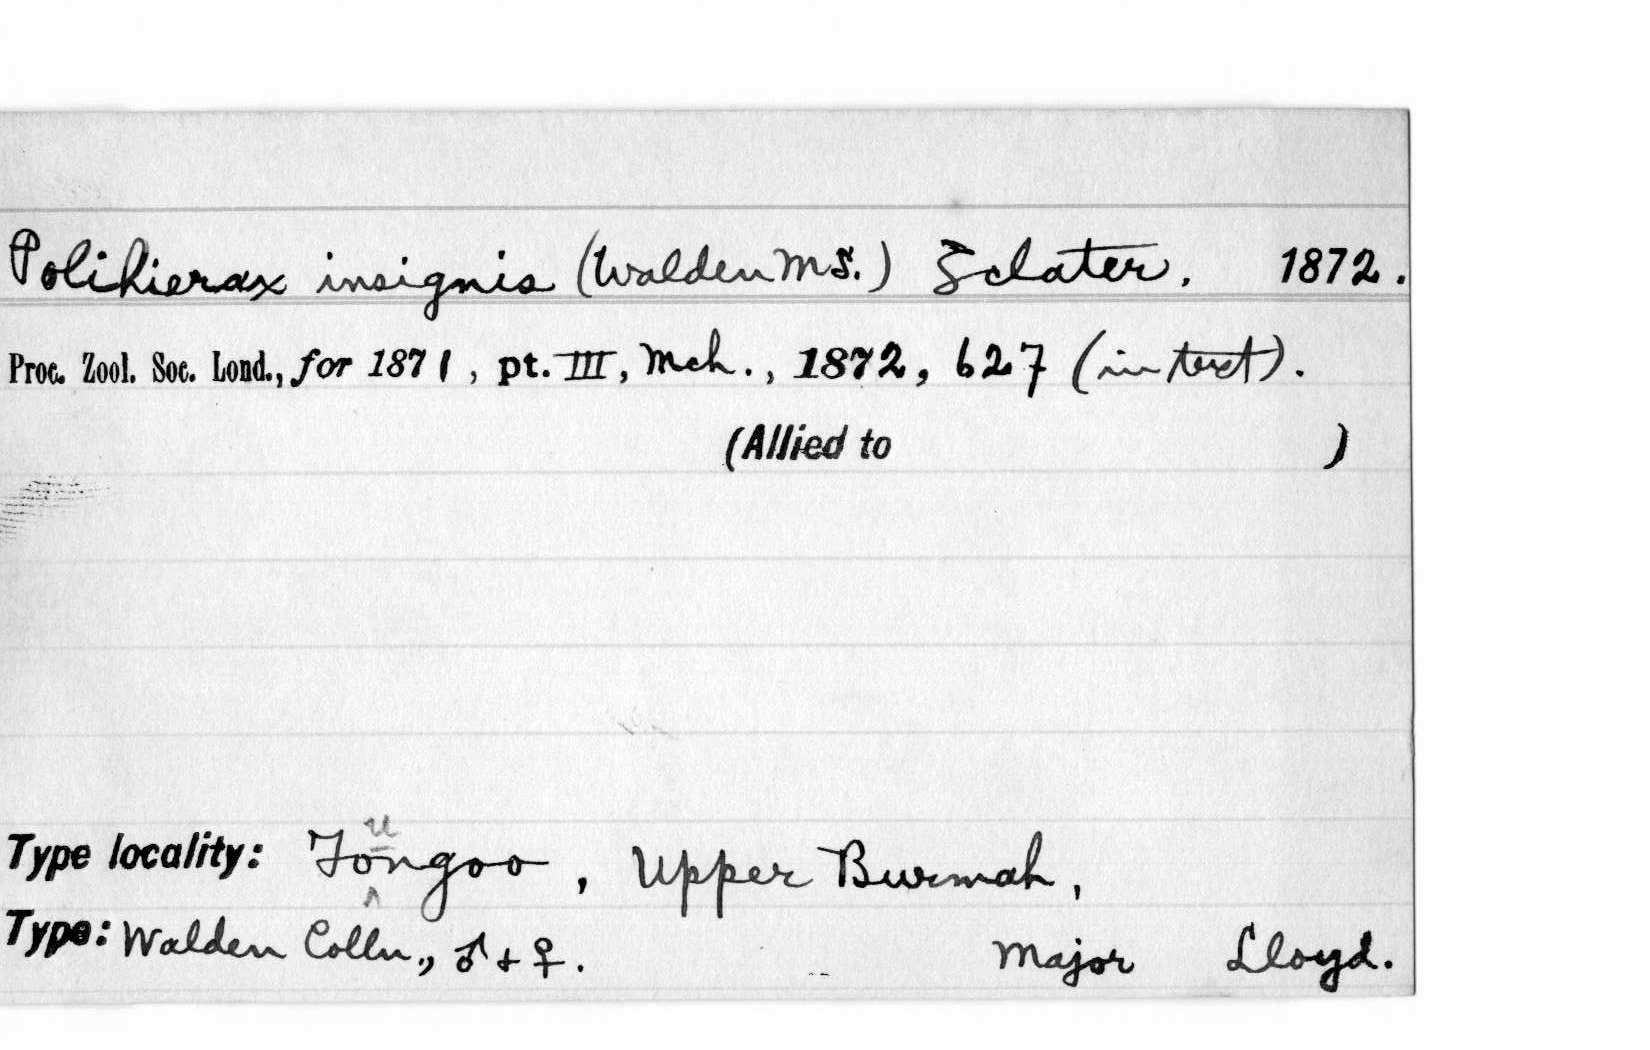 Polihierax insignis (Walden MS.) Sclater, 1872.
Proc. Zool. Soc. Lond., for 1871, pt. III, Mch., 1872, 627 (in text).
(Allied to )
Type locality: Toungoo, Upper Burmah,
Type: Walden Colln., ♂ + ♀. Major Lloyd.